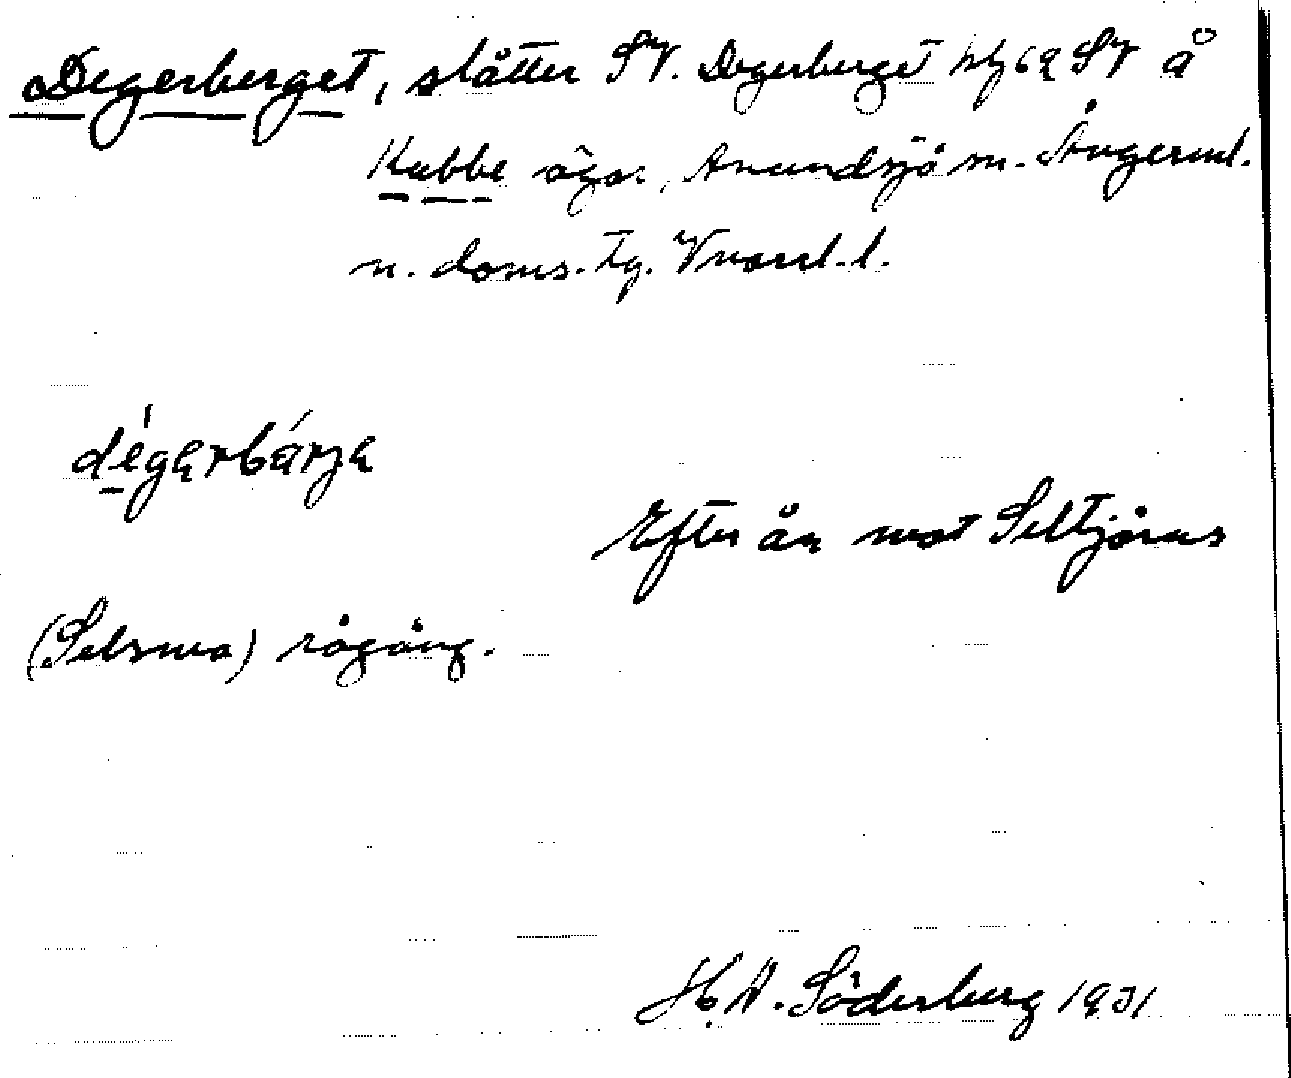 Degerberget, slåtter SV. Degerberget SV å
Kubbe ägor, Anundsjö sn. Ångerml.
n. doms. tg. Vnorrl. l.
dégərbärjə
Efter ån mot Seltjärns
(Selsma) rågång.
H. A. Söderberg 1931